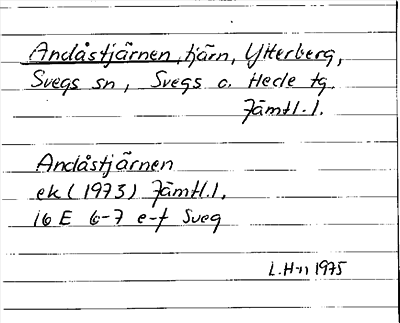 Andåstjärnen, tjärn, Ytterberg,
Svegs sn, Svegs o. Hede tg.
Jämtl.l.
Andåstjärnen
ek (1973) Jämtl.l.
16 E 6-7 e-f Sveg
L.H-n 1975